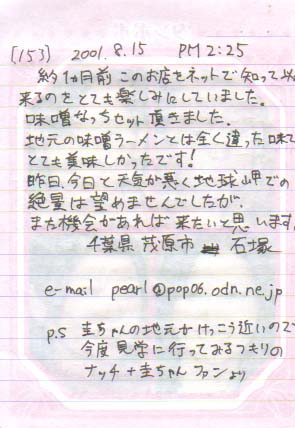 [153] 2001.8.15 PM2:25
約1ヵ月前このお店をネットで知って以
来るのをとても楽しみにしていました。
味噌なっちセット頂きました。
地元の味噌ラーメンとは全く違った味で
とても美味しかったです!
昨日、今日と天気が悪く地球岬での
絶景は望めませんでしたが、
また機会があれば来たいと思います。
千葉県茂原市 石塚
e-mail pearl@pop06.odn.ne.jp
p.s 圭ちゃんの地元がけっこう近いので
今度見学に行ってみるつもりの
ナッチ+圭ちゃんファンより